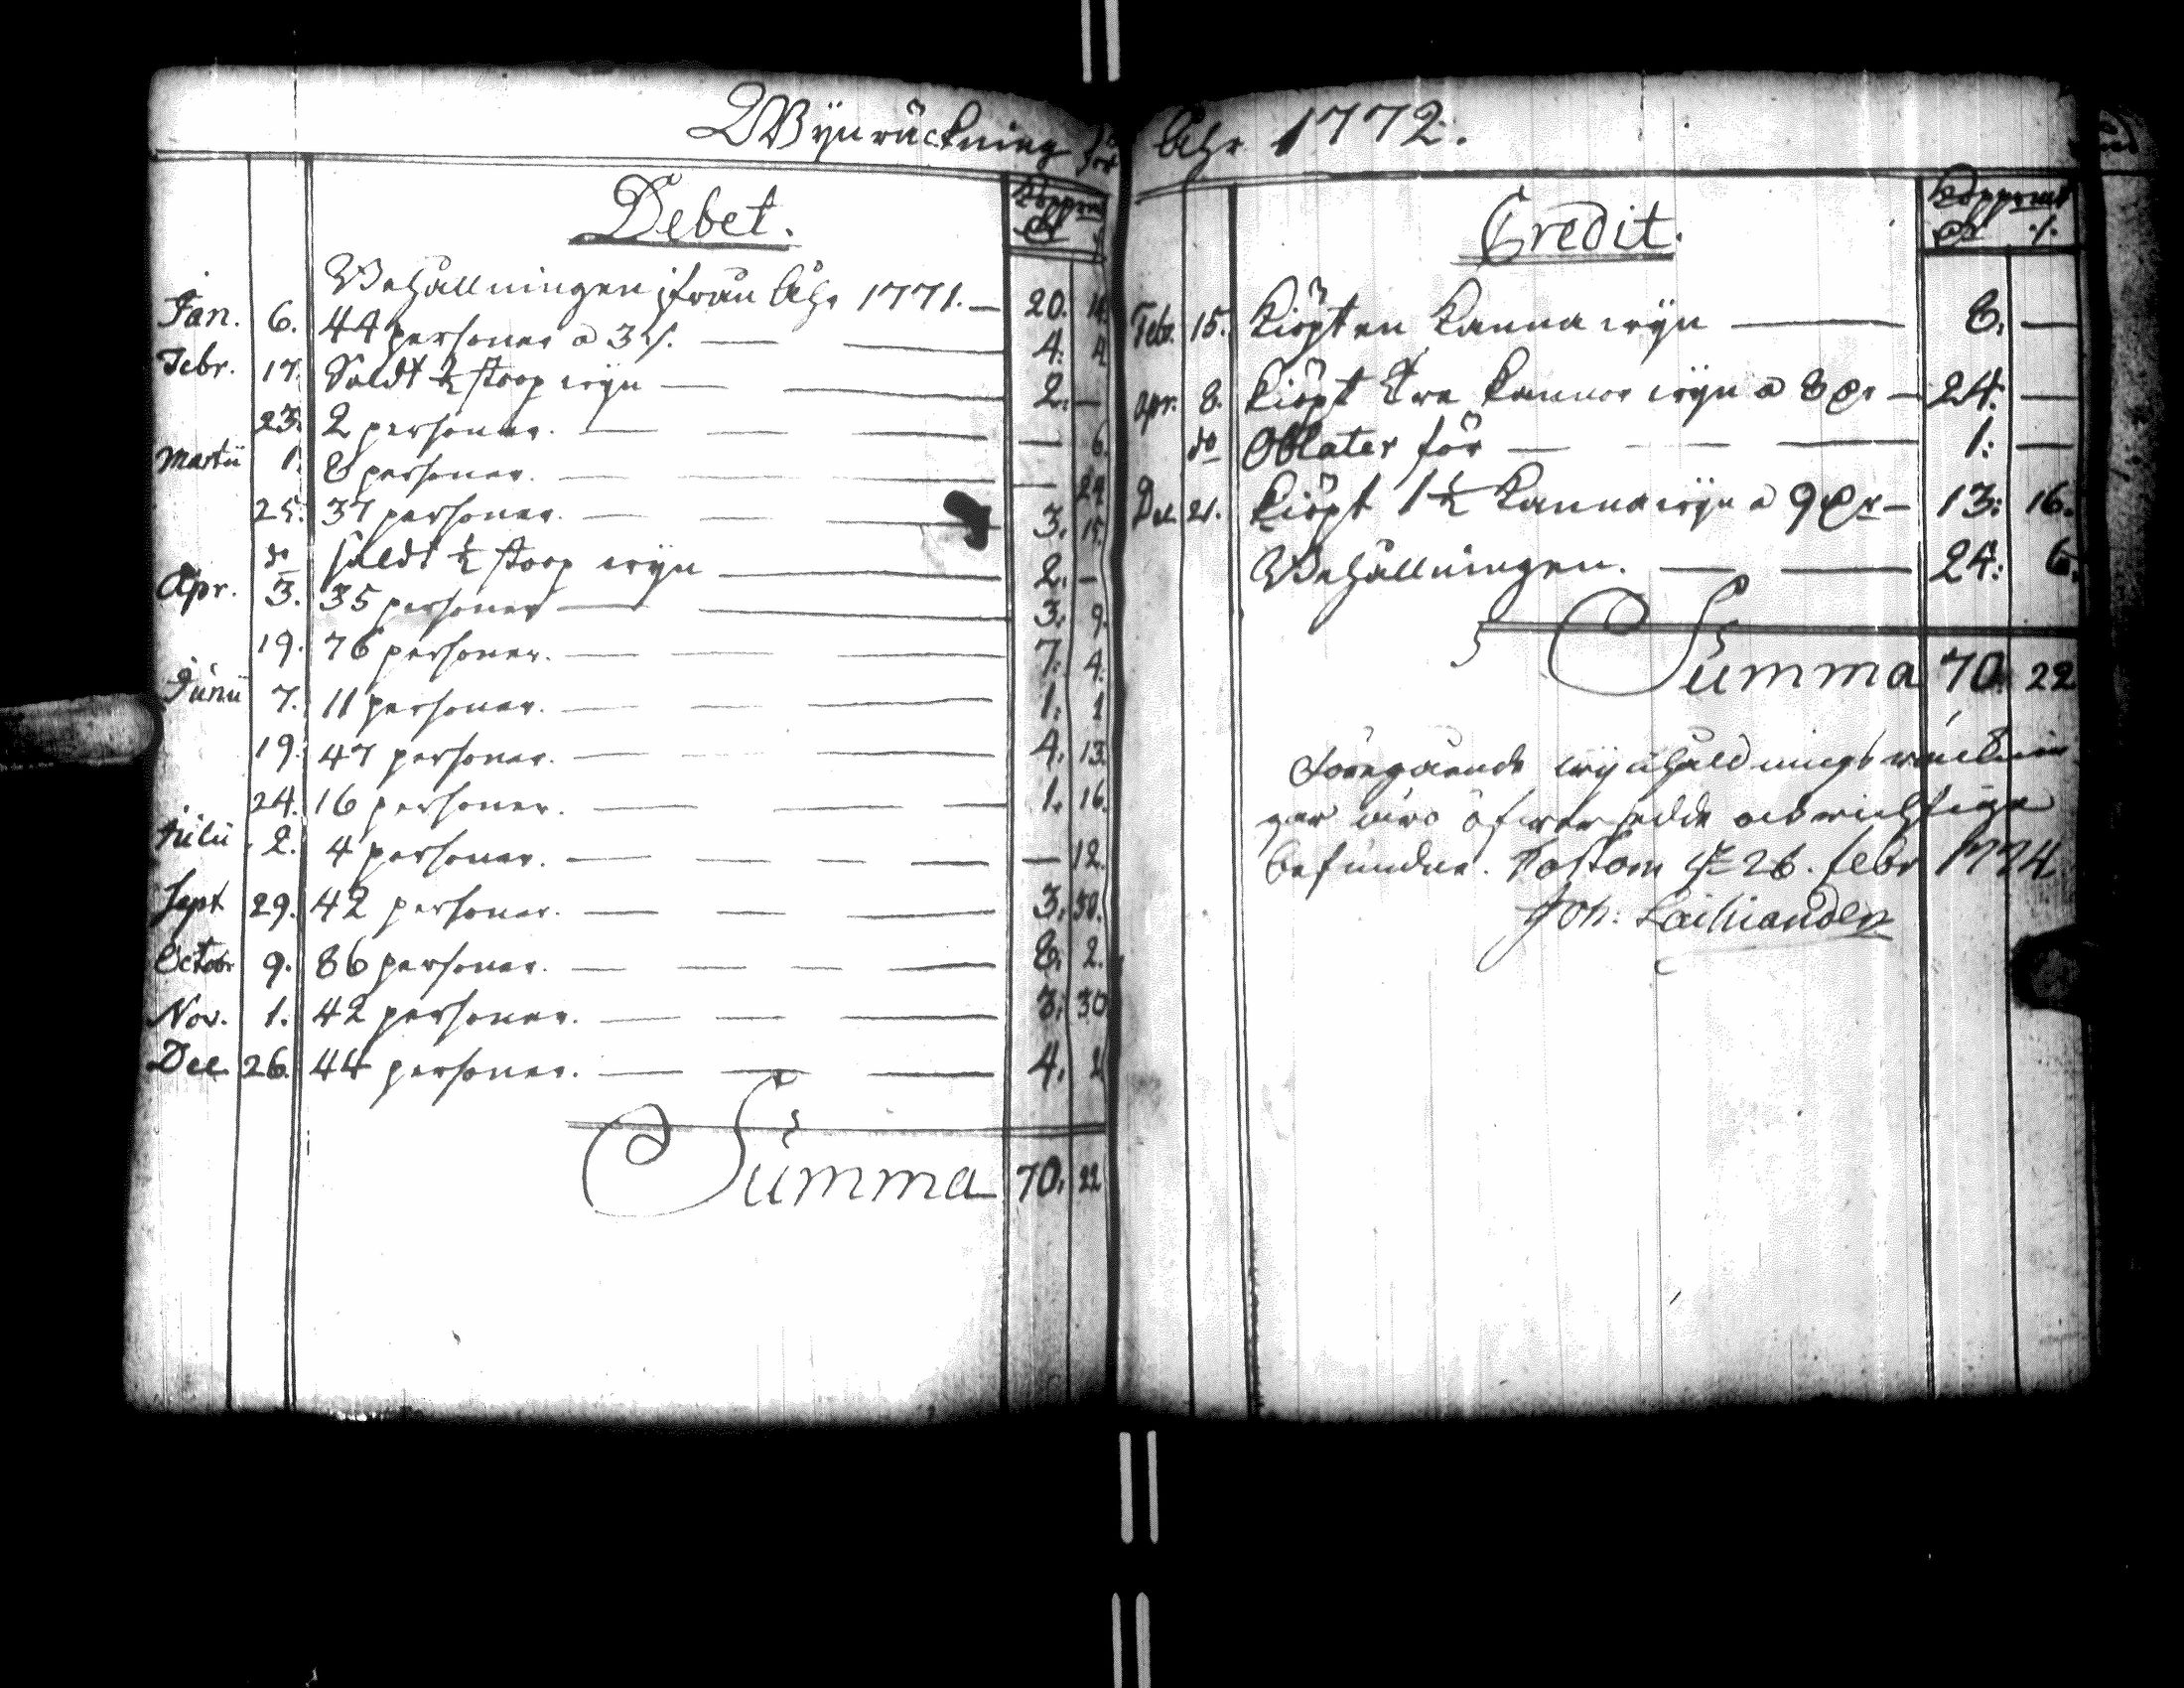 Wynräckning för Åhr 1772.
Debet.
Kopprmt
Behållningen ifrån Åhr 1771. — 20. 16.
Jan. 6. 44 personer a 3 — — 4. 4
Febr. 17. Såldt ½ stoop wyn — — 2. —
23. 2 personer. — — — — 6.
Martii 1. 8 personer. — — — — 24.
25. 37 personer. — — — 3. 15.
do Såldt ½ stoop wyn — 2. —
Apr. 3. 35 personer — — 3. 9.
19. 76 personer. — — — 7. 4.
Junii 7. 11 personer. — — — 1. 1
19. 47 personer. — — — 4. 13.
24. 16 personer. — — — 1. 16.
Julii 2. 4 personer. — — — — — 12.
Sept 29. 42 personer. — — — 3. 30.
Octobr 9. 86 personer. — — — — 8. 2.
Nov. 1. 42 personer. — — — 3. 30
Dec 26. 44 personer. — — — 4. 4
Summa 70. 22
Credit.
Kopprmt
Febr. 15. Kiöpt en Kanna wyn — 8. —
apr. 8. Kiöpt Tre Kannor wyn a 8 — 24. —
do Oblater för — — — 1. —
Dec 21. Kiöpt 1½ Kanna wyn a 9 — 13. 16.
Behållningen. — — 24. 6.
Summa 70. 22
Föregående wynhåldnings räcknin
gar äro öfwersedde och richtige
befundne. d. 26. febr 1774
Joh: